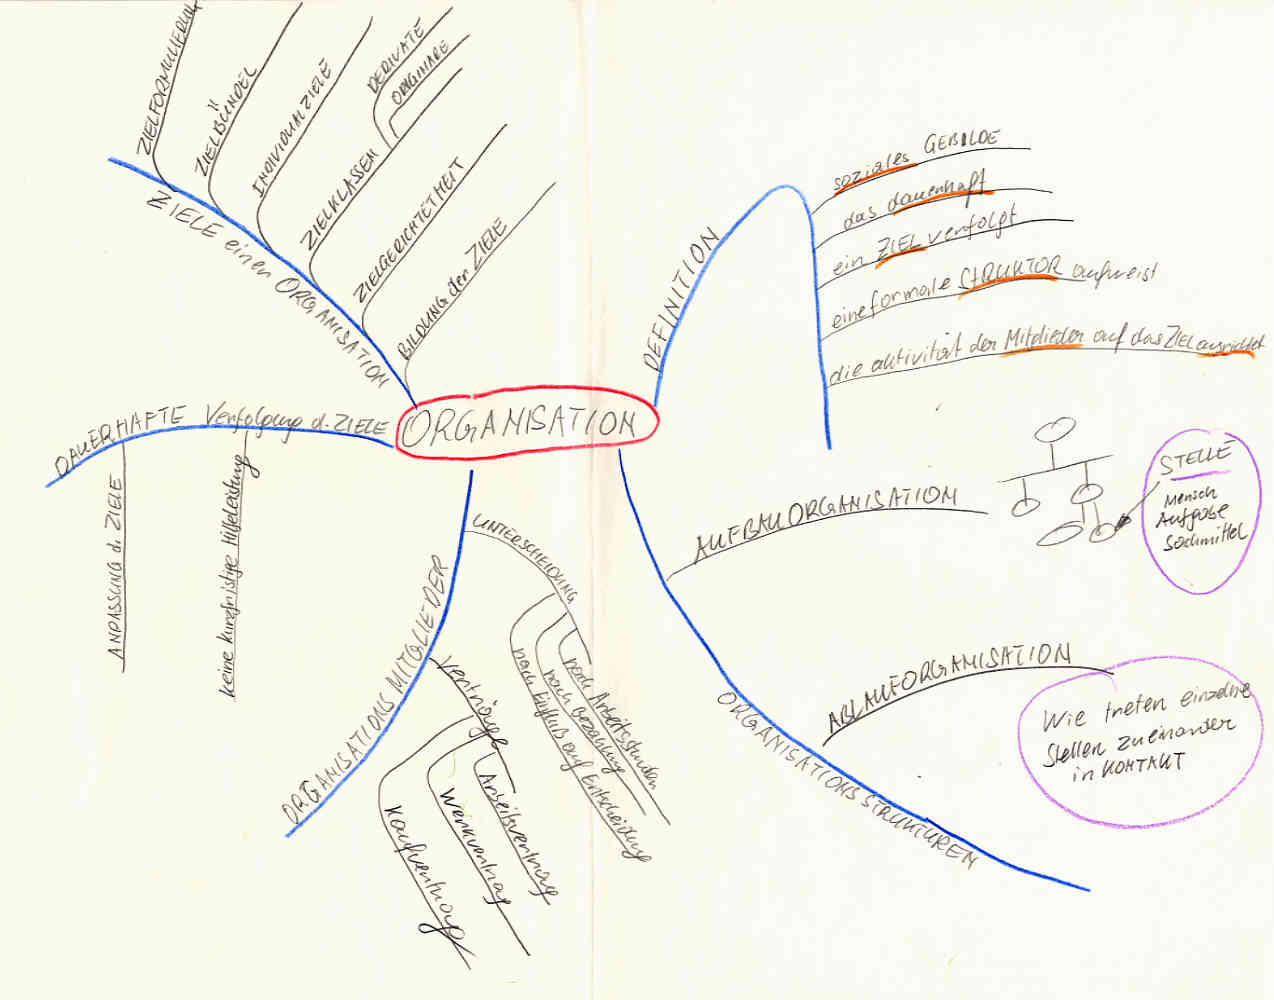 ZIELFORMULIERUNG
ZIELBÜNDEL
INDIVIDUALZIELE
ZIELKLASSEN
DERIVATE
ORIGINÄRE
ZIELGERICHTETHEIT
BILDUNG der ZIELE
ZIELE einer ORGANISATION
DEFINITION
soziales GEBILDE
das dauerhaft
ein ZIEL verfolgt
eine formale STRUKTUR aufweist
die aktivität der Mitglieder auf das ZIEL ausrichtet
ORGANISATION
DAUERHAFTE Verfolgung d. ZIELE
ANPASSUNG d. ZIELE
keine kurzfristige Hilfeleistung
ORGANISATIONS MITGLIEDER
UNTERSCHEIDUNG
nach Arbeitsstunden
nach Bezahlung
nach Einfluß auf Entscheidung
Verträge
Arbeitsvertrag
Werkvertrag
Kaufvertrag
ORGANISATIONS STRUKTUREN
AUFBAUORGANISATION
STELLE
Mensch
Aufgabe
Sachmittel
ABLAUFORGANISATION
Wie treten einzelne
Stellen zueinander
in KONTAKT